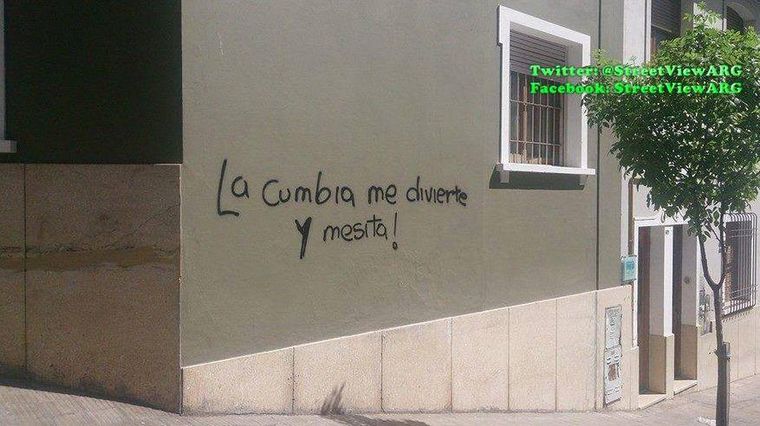 Twitter: @StreetViewARG
Facebook: StreetViewARG
La cumbia me divierte
y mesita!